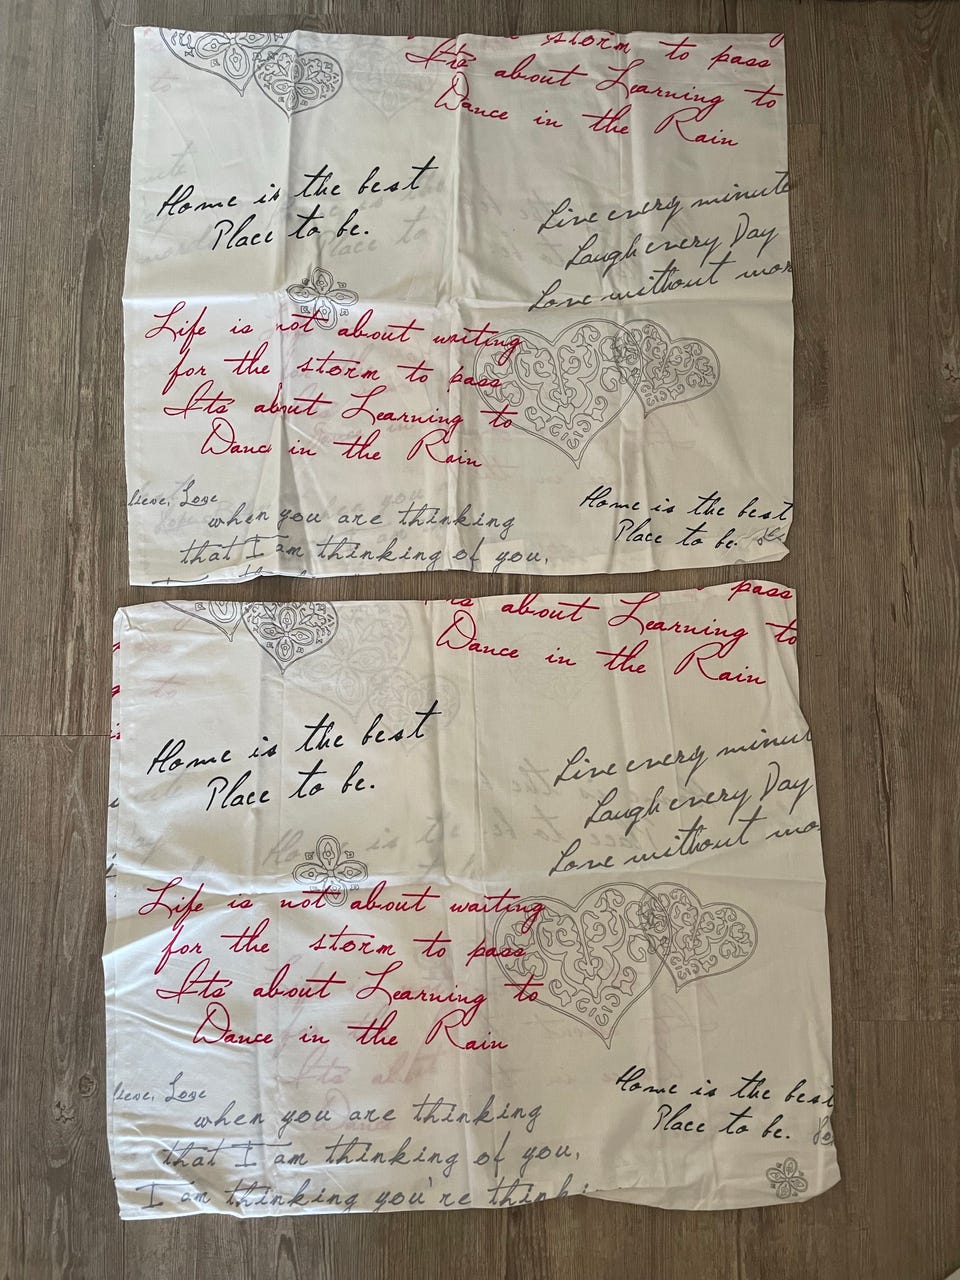 storm to pass
Its about Learning to
Dance in the Rain
Home is the best
Place to be.
Live every minute
Laugh every Day
Love without
Life is not about waiting
for the storm to pass
Its about Learning to
Dance in the Rain
lieve, Love
when you are thinking
that I am thinking of you,
Home is the best
Place to be.
pass
about Learning to
Dance in the Rain
Home is the best
Place to be.
Live every minut
Laugh every Day
Love without
Life is not about waiting
for the storm to pass
Its about Learning to
Dance in the Rain
lieve, Love
when you are thinking
that I am thinking of you,
I am thinking you're think
Home is the best
Place to be.